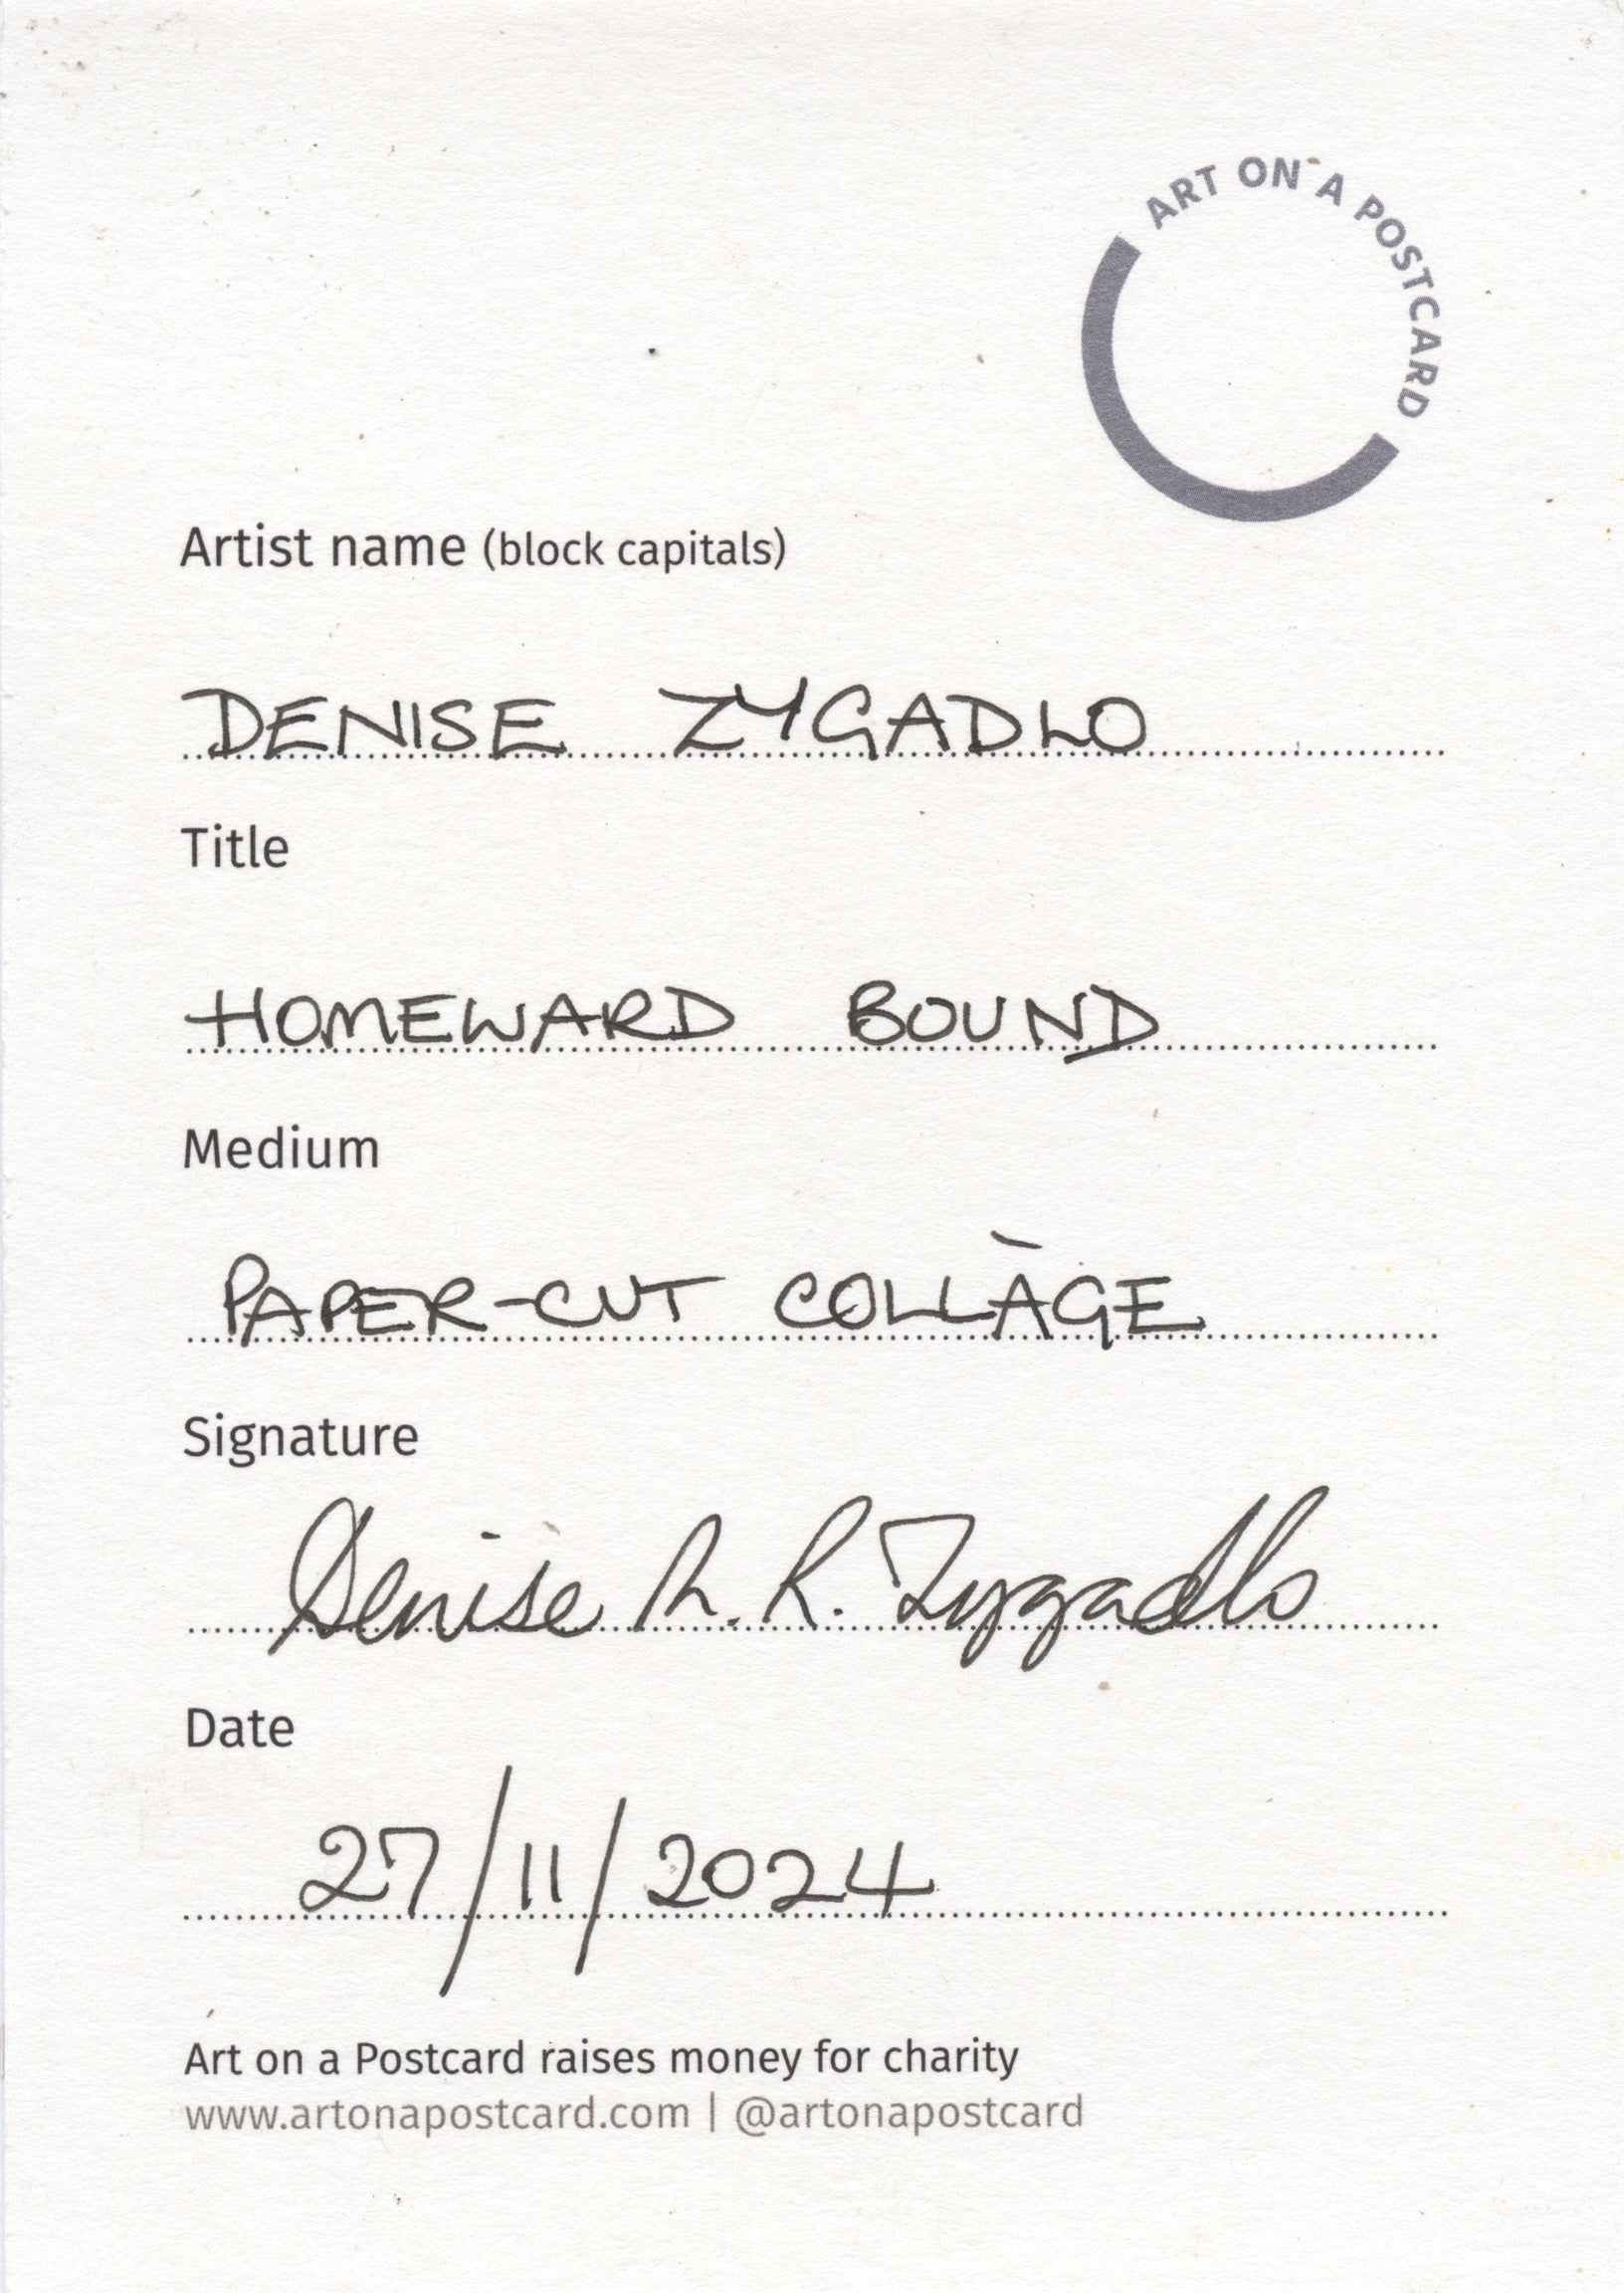 ART ON A POSTCARD
Artist name (block capitals)
DENISE ZYGADLO
Title
HOMEWARD BOUND
Medium
PAPER-CUT COLLÀGE
Signature
Denise R. Zygadlo
Date
27/11/2024
Art on a Postcard raises money for charity
www.artonapostcard.com | @artonapostcard